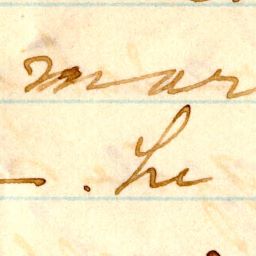 mar
. he